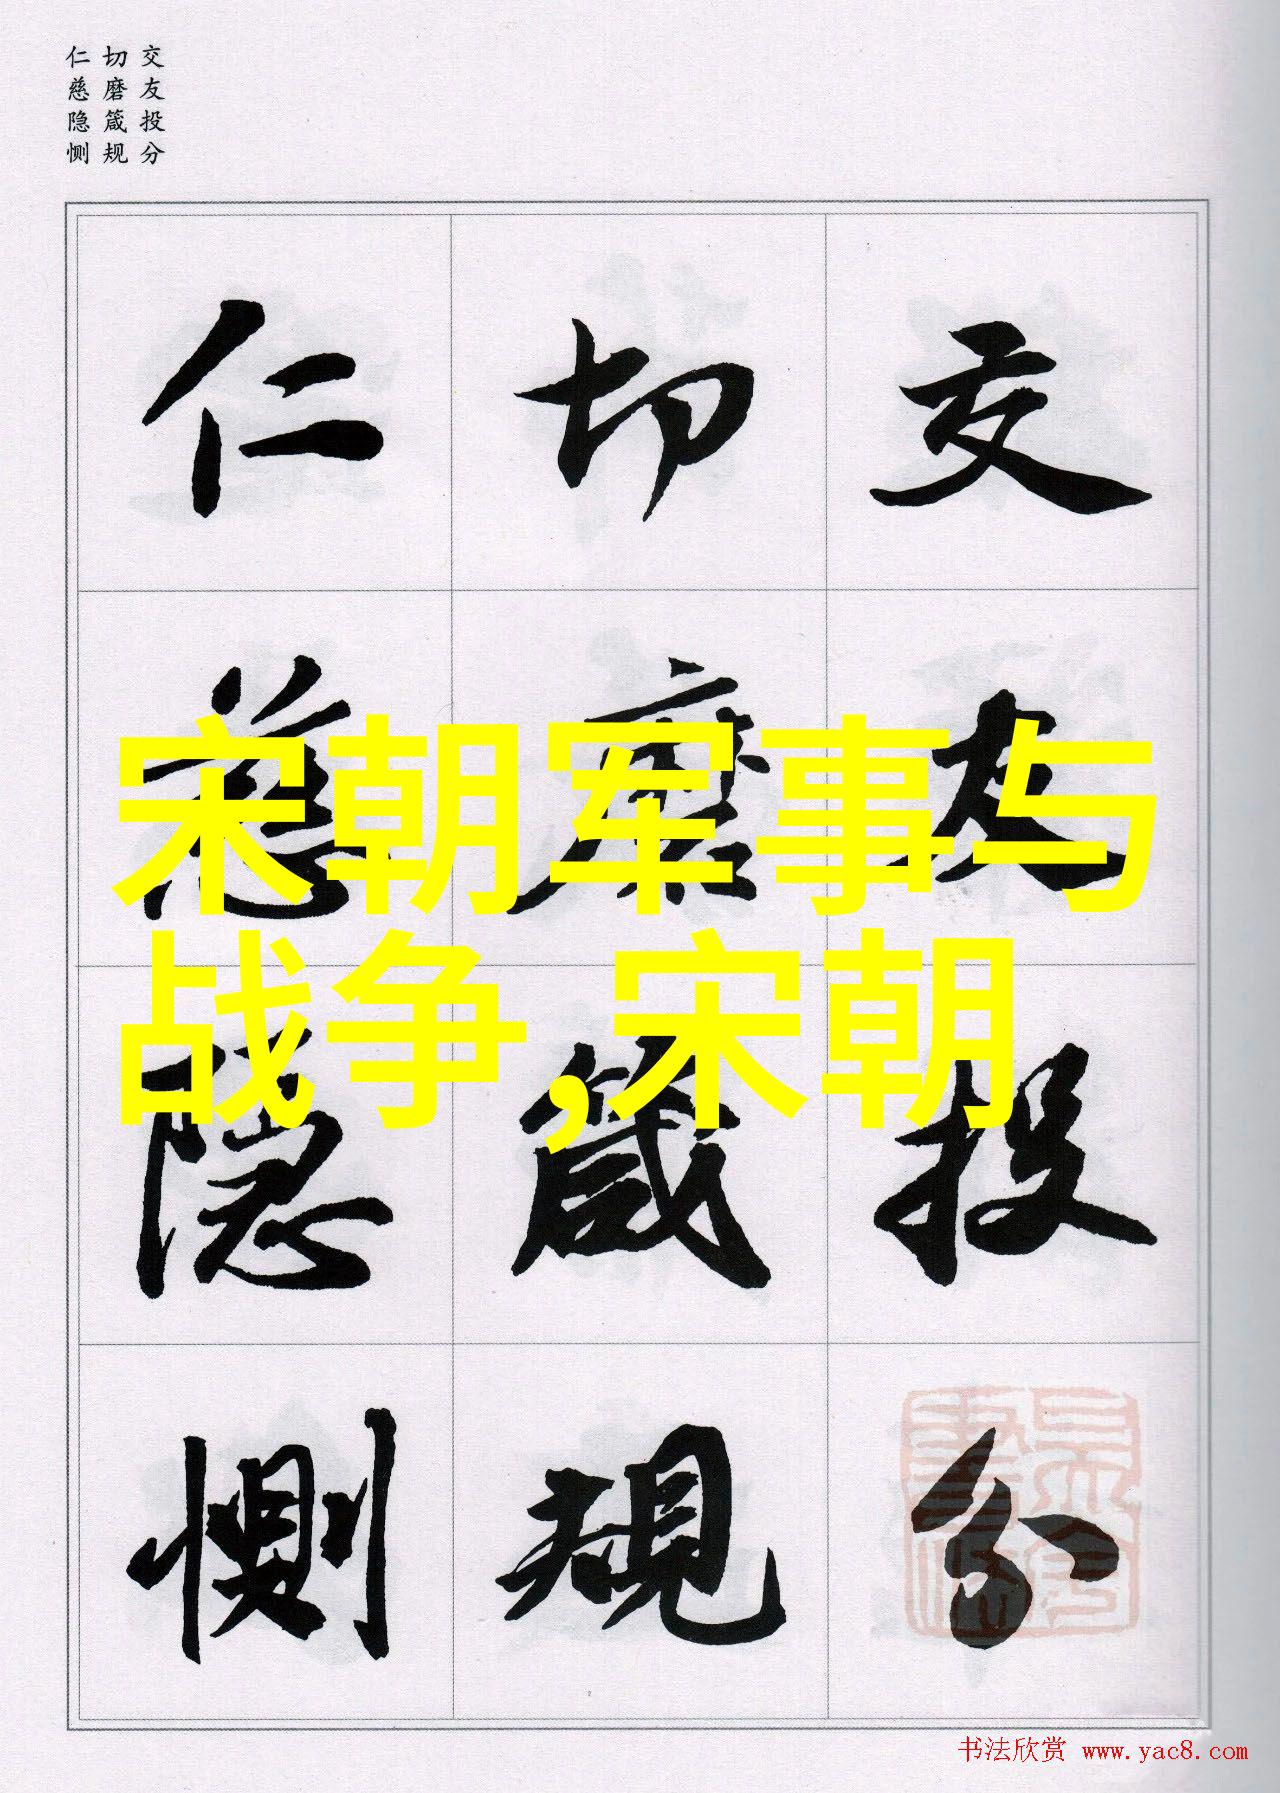 交友投分
切磨箴规
仁慈隐恻
交友投分
切磨箴規
仁慈隐恻
宋朝军事与
战争,宋朝
书法欣赏 www.yac8.com